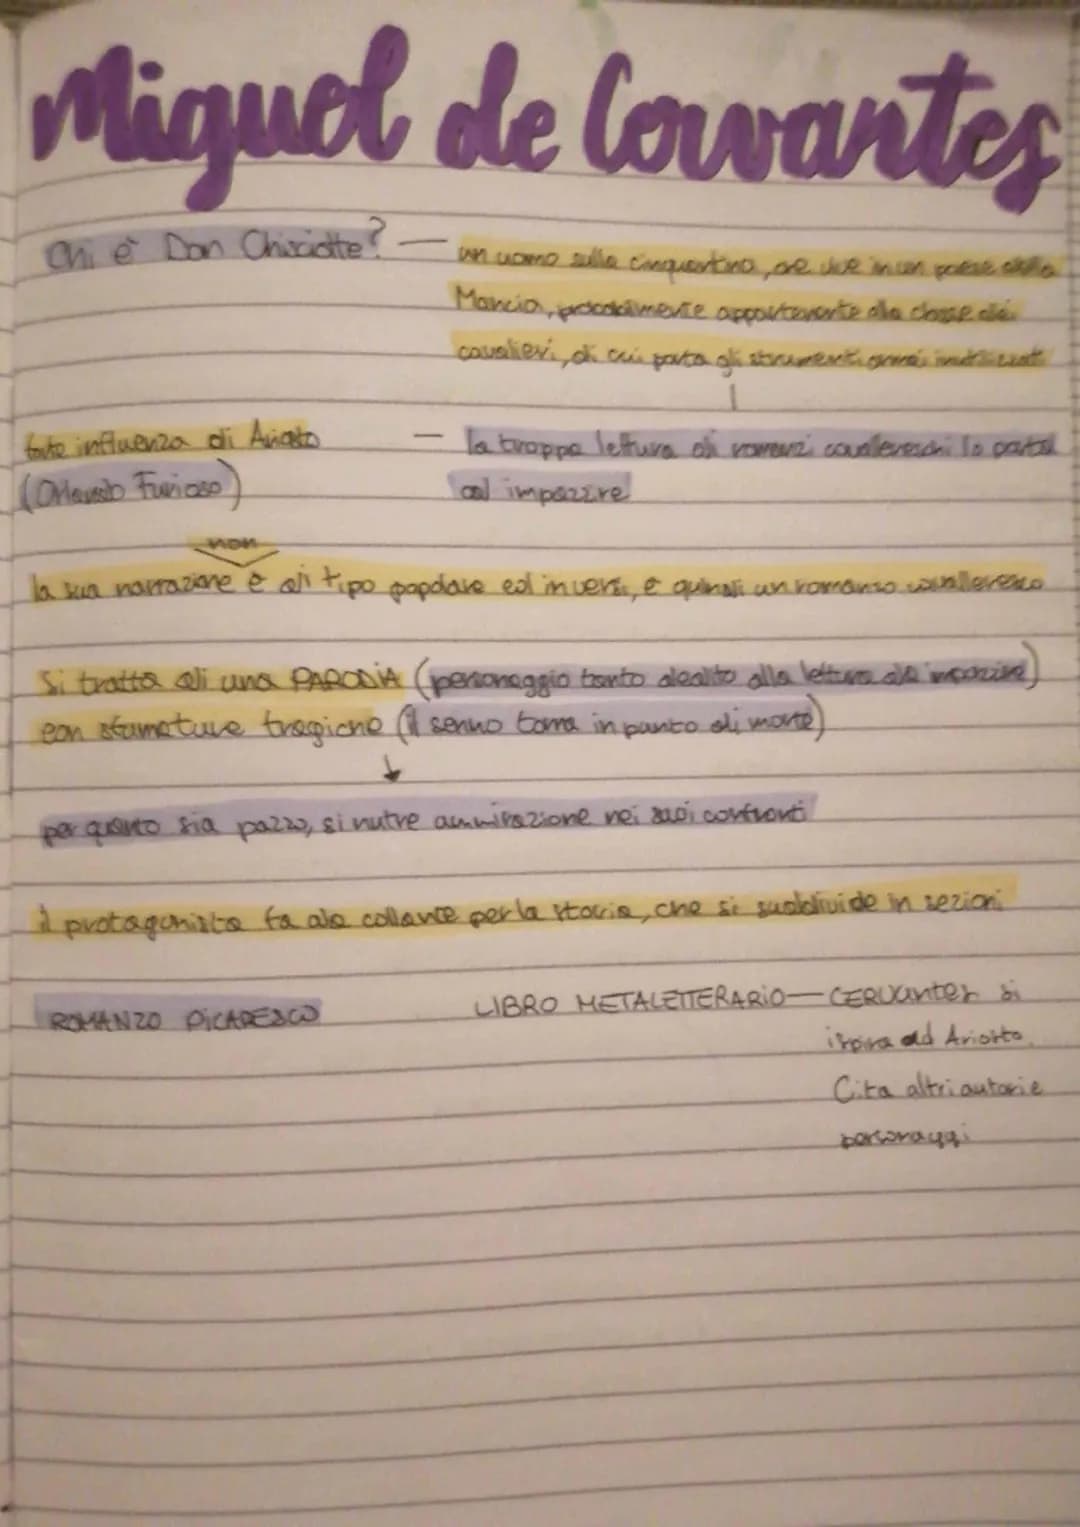 Miguel de Cervantes
Chi è Don Chisciotte? — un uomo sulla cinquantina, che vive in un paese della
Mancia, probabilmente appartenente alla classe dei
cavalieri, di cui porta gli strumenti ormai inutilizzati
forte influenza di Ariosto — la troppa lettura di romanzi cavallereschi lo porta
(Orlando Furioso) ad impazzire
non
la sua narrazione è di tipo popolare ed in versi, è quindi un romanzo cavalleresco
Si tratta di una PARODIA (personaggio tanto dedito alla lettura da impazzire)
con sfumature tragiche (il senno torna in punto di morte)
per quanto sia pazzo, si nutre ammirazione nei suoi confronti
il protagonista fa da collante per la storia, che si suddivide in sezioni
ROMANZO PICARESCO LIBRO METALETTERARIO — CERVantes si
ispira ad Ariosto.
Cita altri autori e
personaggi